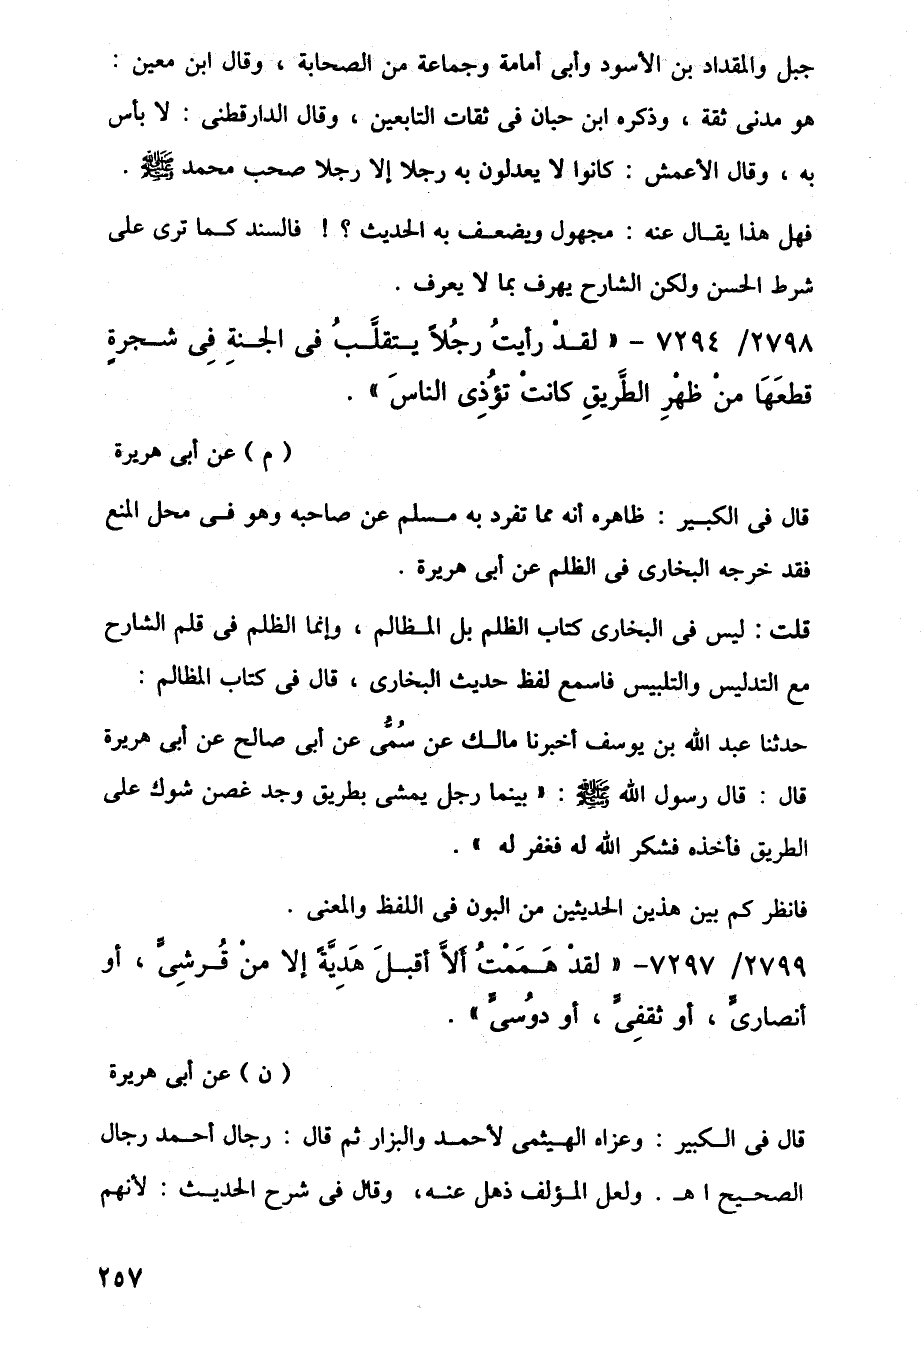 جبل والمقداد بن الأسود وأبى أمامة وجماعة من الصحابة ، وقال ابن معين :
هو مدنى ثقة ، وذكره ابن حبان فى ثقات التابعين ، وقال الدارقطنى : لا بأس
به ، وقال الأعمش : كانوا لا يعدلون به رجلا إلا رجلا صحب محمد ﷺ .
فهل هذا يقال عنه : مجهول ويضعف به الحديث ؟ ! فالسند كما ترى على
شرط الحسن ولكن الشارح يهرف بما لا يعرف .
٢٧٩٨/ ٧٢٩٤ - « لقدْ رأيتُ رجُلاً يتقلَّبُ فى الجنةِ فِى شجرةٍ
قطعَهَا منْ ظهْرِ الطَّريقِ كانتْ تؤْذِى الناسَ » .
( م ) عن أبى هريرة
قال فى الكبير : ظاهره أنه مما تفرد به مسلم عن صاحبه وهو فى محل المنع
فقد خرجه البخارى فى الظلم عن أبى هريرة .
قلت : ليس فى البخارى كتاب الظلم بل المظالم ، وإنما الظلم فى قلم الشارح
مع التدليس والتلبيس فاسمع لفظ حديث البخارى ، قال فى كتاب المظالم :
حدثنا عبد الله بن يوسف أخبرنا مالك عن سُمَُّى عن أبى صالح عن أبى هريرة
قال : قال رسول الله ﷺ : « بينما رجل يمشى بطريق وجد غصن شوك على
الطريق فأخذه فشكر الله له فغفر له » .
فانظر كم بين هذين الحديثين من البون فى اللفظ والمعنى .
٢٧٩٩/ ٧٢٩٧- « لقدْ هَمَمْتُ أَلاَّ أقبلَ هَدِيَّةً إلا منْ قُرشِىٍّ ، أو
أنصارىٍّ ، أو ثقفِىٍّ ، أو دوْسىٍّ » .
( ن ) عن أبى هريرة
قال فى الكبير : وعزاه الهيثمى لأحمد والبزار ثم قال : رجال أحمد رجال
الصحيح ا هـ . ولعل المؤلف ذهل عنه، وقال فى شرح الحديث : لأنهم
٢٥٧